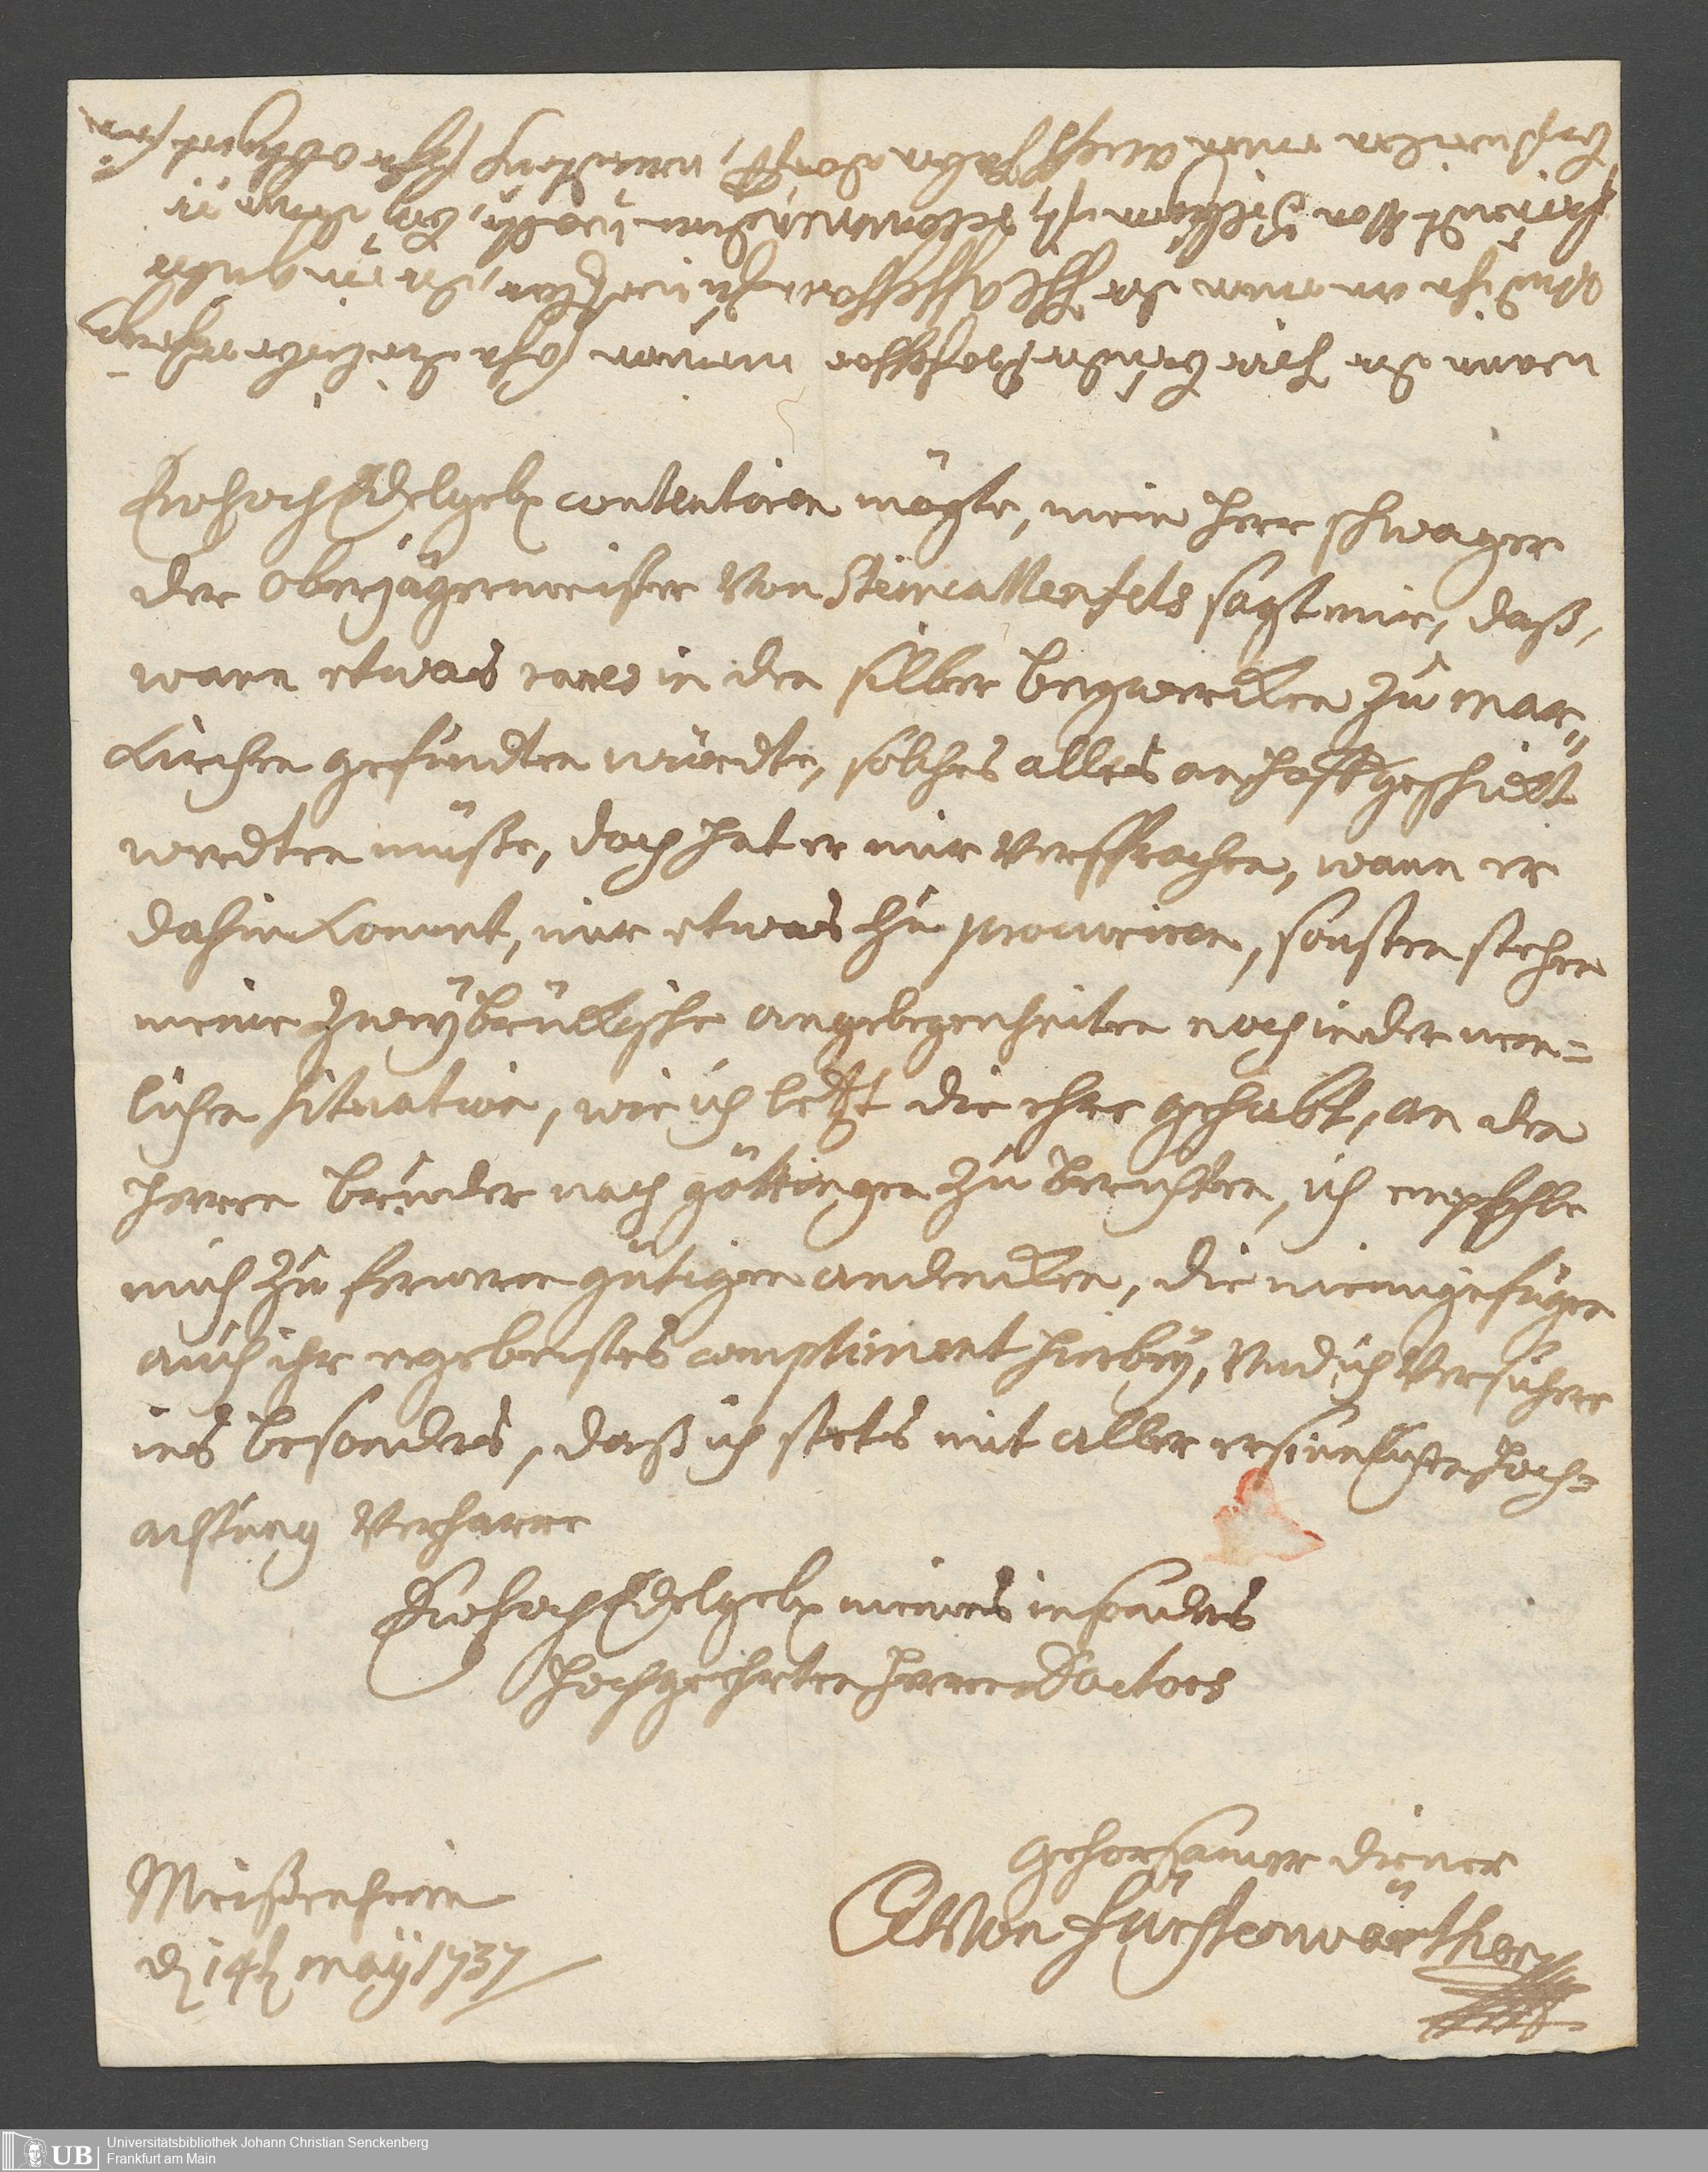 EwhochEdelgeb contentiren mögte, mein Herr schwager
der Oberjägermeister Von Steincallenfels sagt mir, daß,
wann etwas rares in den silber bergwercken zu mar=
kirchen gefundten würdte, solches alles an hoff geschickt
werdten müßte, doch hat er mir versprochen, wann er
dahin kommt, mir etwas zu procuriren, sonsten stehen
meine Zweybrückische angelegenheiten noch in der nem=
lichen situation, wie ich letzt die ehre gehabt, an den
herren bruder nach göttingen zu berichten, ich empfehle
mich zu fernerem gütigen andencken, die meinige fügen
auch ihr ergebenstes compliment hierbey, Und ich Versichere
ins besonders, daß ich stets mit aller ersinnlichsten Hoch=
achtung Verharre
EwhochEdelgeb meines insonders
Hochgeehrten Herren Doctors
gehorsamer diener
Von Fürstenwärther
Meißenheim
d 14t may 1737
wann der Herr bruder Professor meinen sohn
Und ihn an einen der HH Assessoren
freundt Von recommendiren wolte,
UB Universitätsbibliothek Johann Christian Senckenberg
Frankfurt am Main